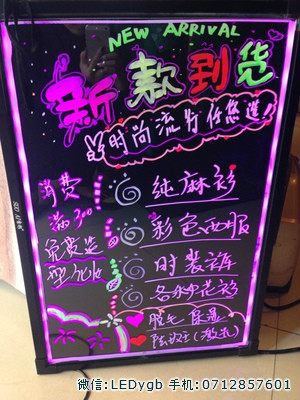 NEW ARRIVAL
新款到货
时尚流行任您选!
消费
满300
免费造
型化妆
纯麻衫
彩色西服
时装裤
各式沙花衫
微信:LEDygb 手机:0712857601